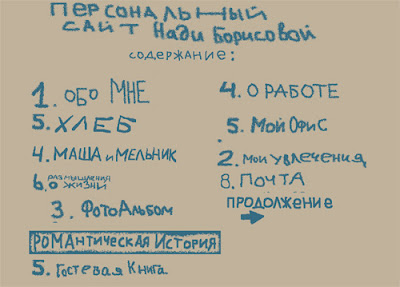 ПЕРСОНАЛЬНЫЙ
САЙТ Нади Борисовой
содержание:
1. обо МНЕ
5. ХЛЕБ
4. МАША и МЕЛЬНИК
6. размышления
о жизни
3. ФотоАльбом
РОМАнтическая История
5. Гостевая Книга
4. О РАБОТЕ
5. Мой Офис
2. мои увлечения
8. ПОЧТА
ПРОДОЛЖЕНИЕ